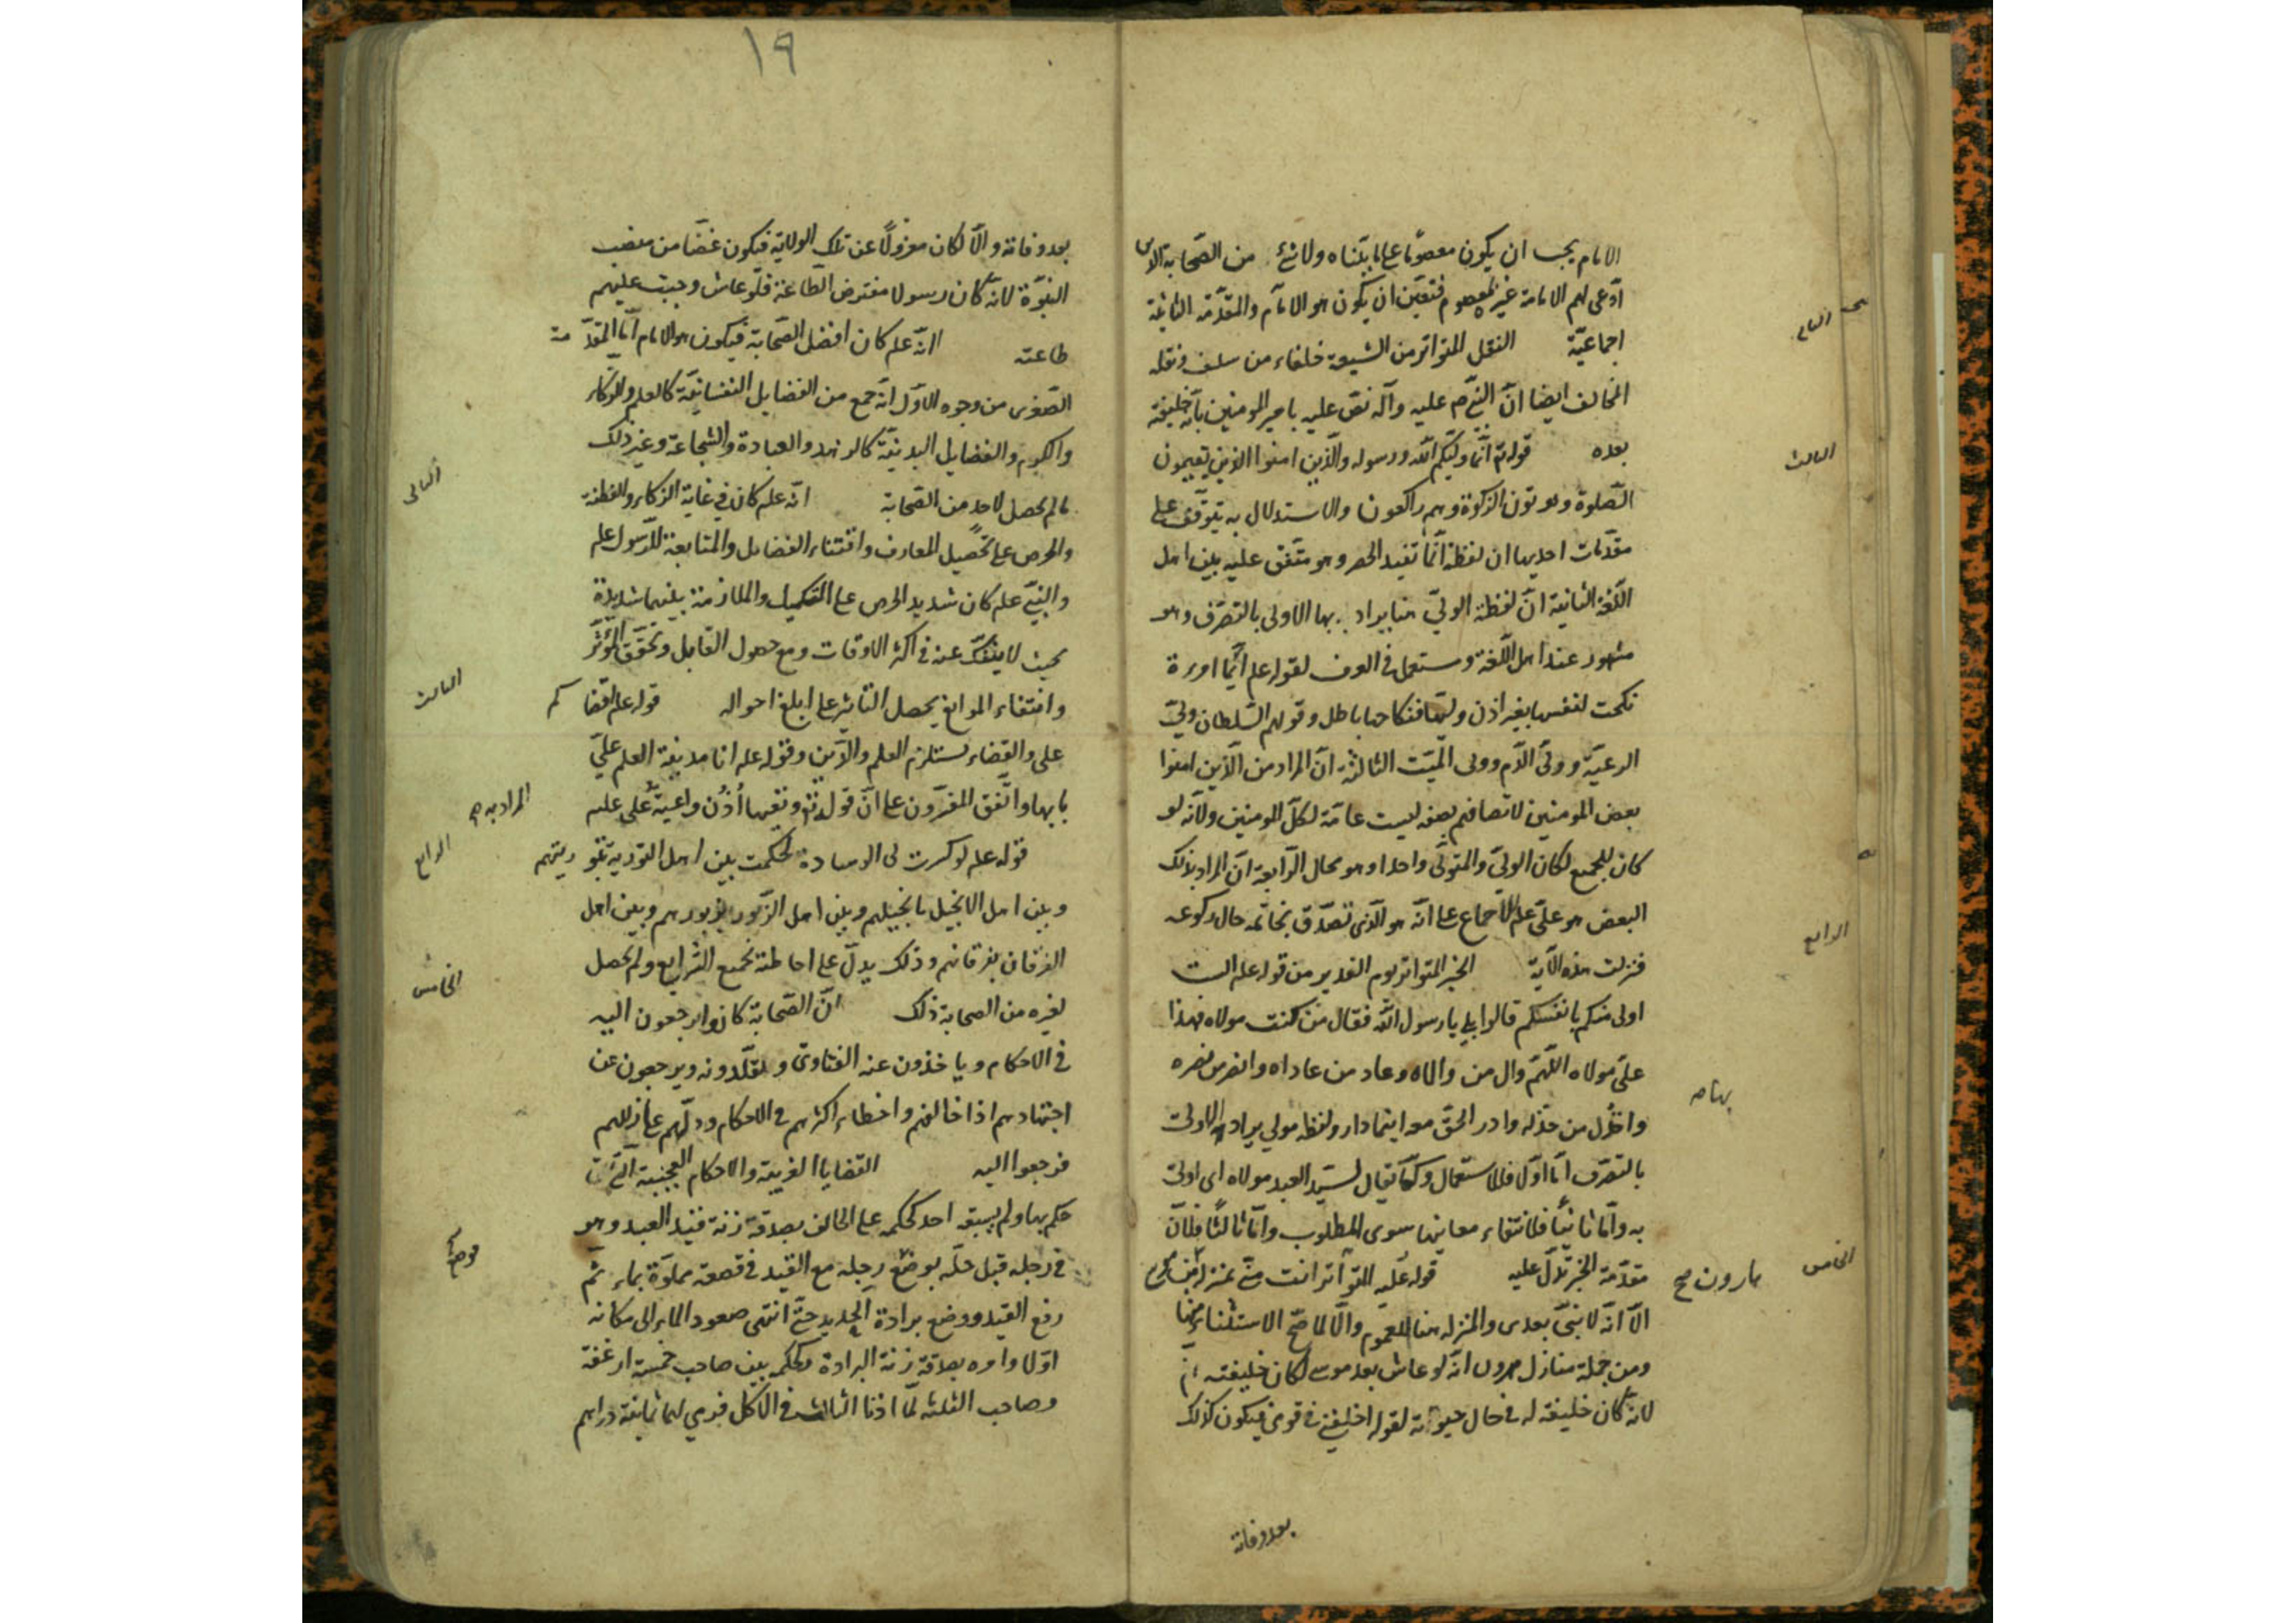 الامام يجب ان يكون معصومًا على ما بيّناه ولا شئ من الصّحابة الذين
ادّعى لهم الامامة غيره بمعصوم فتعيّن ان يكون هو الامام والمقدّمة الثانية
اجماعيّة النقل المتواتر من الشيعة خلفاء من سلف ونقله
الثانى
المخالف ايضا انّ النبىّ صم عليه وآله نصّ عليه بامير المومنين بأنّه خليفة
بعده قوله تع انّما وليّكم اللّه ورسوله والّذين امنوا الذين يقيمون
الثالث
الصّلوة ويوتون الزكوة وهم راكعون والاستدلال به يتوقّف على
مقدّمات احديها ان لفظة انّما تفيد الحصر وهو متّفق عليه بين اهل
اللّغة الثانية انّ لفظة الولىّ هنا يراد بها الاولى بالتصرّف وهو
مشهور عند اهل اللّغة ومستعمل فى العرف لقوله علم ايّما امرءة
نكحت لنفسها بغير اذن وليّها فنكاحها باطل وقولهم السّلطان ولىّ
الرعيّة وولىّ الدّم وولى الميّت الثالثة انّ المراد من الّذين امنوا
بعض المومنين لاتصافهم بصفه ليست عامّة لكلّ المومنين ولانّه لو
كان للجميع لكان الولىّ والمتولّى واحدا وهو محال الرّابعة انّ المراد بذلك
البعض هو علىّ علم للاجماع على انّه هو الّذى تصدّق بخاتمه حال ركوعه
فنزلت هذه الآية الخبر المتواتر يوم الغدير من قوله علم الست
الرابع
اولى منكم بانفسكم قالوا بلى يا رسول اللّه فقال من كنت مولاه فهذا
علىّ مولاه اللّهمّ وال من والاه وعاد من عاداه وانصر من نصره
واخذل من خذله وادر الحقّ معه اينما دار ولفظه مولى يراد بها الاولى
بها صح
بالتصرّف امّا اوّلا فللاستعمال وكما يقال لسيّد العبد مولاه اى اولى
به وامّا ثانيًا فلانتفاء معانيها سوى المطلوب وامّا ثالثًا فلانّ
مقدّمة الخبر تدلّ عليه قوله عليه المتواتر انت منّى بمنزلة من موسى
هارون صح
الخامس
الّا انّه لا نبىّ بعدى والمنزله هنا للعموم والّا لما صحّ الاستثناء منها
ومن جملة منازل هرون انّه لو عاش بعد موسى لكان خليفته
لانّه كان خليفة له فى حال حيوته لقوله اخلفنى فى قومى فيكون كذلك
بعد وفاته
١٩
بعد وفاته والّا لكان معزولًا عن تلك الولاية فيكون غضّا من منصب
النبوّة لانّه كان رسولا مفترض الطّاعة فلو عاش وجبت عليهم
طاعته انّه علم كان افضل الصّحابة فيكون هو الامام امّا المقدّمة
الصّغرى من وجوه الاوّل انّه جمع من الفضايل النفسانيّة كالعلم والذكاء
والكرم والفضايل البدنيّة كالزهد والعبادة والشجاعة وغير ذلك
ما لم يحصل لاحد من الصّحابة انّه علم كان فى غاية الذكاء والفطنة
الثانى
والحرص على تحصيل المعارف واقتناء الفضايل والمتابعة للرّسول علم
والنبىّ علم كان شديد الحرص على التكميل والملازمة بينهما شديدة
بحيث لا ينفكّ عنه فى اكثر الاوقات ومع حصول القابل وتحقّق المؤثّر
وانتفاء الموانع يحصل التاثير على ابلغ احواله قوله علم اقضاكم
الثالث
على والقضاء يستلزم العلم والدّين وقوله علم انا مدينة العلم علىّ
بابها واتّفق المفسّرون على انّ قوله تع وتعيها أُذُن واعيةٌ على عليه
المراد به
قوله علم لو كسرت لى الوسادة لحكمت بين اهل التورية بتوريتهم
الرابع
وبين اهل الانجيل بانجيلهم وبين اهل الزّبور بزبورهم وبين اهل
الفرقان بفرقانهم وذلك يدلّ على احاطته بجميع الشرايع ولم يحصل
لغيره من الصحابة ذلك انّ الصّحابة كانوا يرجعون اليه
الخامس
فى الاحكام وياخذون عنه الفتاوى ويقلّدونه ويرجعون عن
اجتهادهم اذا خالفهم واخطاء اكثرهم فى الاحكام ودلّهم على زللهم
فرجعوا اليه القضايا الغريبة والاحكام العجيبة الّتى
حكم بها ولم يسبقه احد كحكمه على الحالف بصدقة زنة قيد العبد وهو
فى رجله قبل حلّه بوضع رجله مع القيد فى قصعة مملوّة بماء ثمّ
رفع القيد ووضع برادة الحديد حتّى انتهى صعود الماء الى مكانه
اوّلا وامره بصدقة زنة البرادة وكحكمه بين صاحب خمسة ارغفة
وصاحب الثلثه لمّا اذنا الثالث فى الاكل فرمى لهما ثمانية دراهم